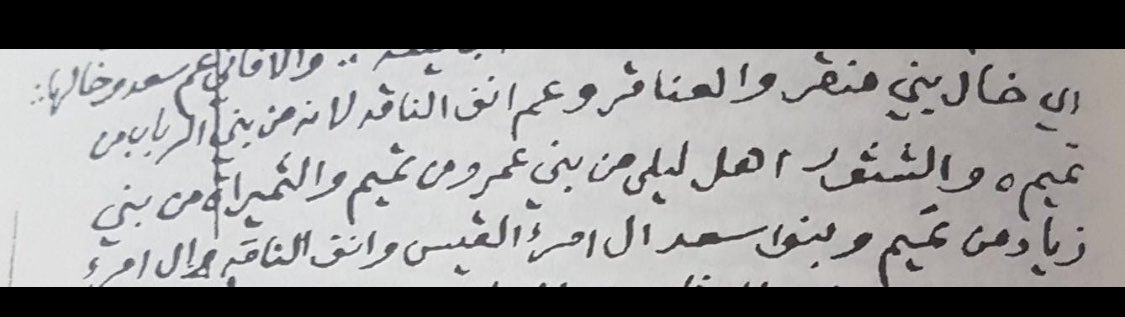 والافاني عم سعد وخالها:
اي خال بني منقر والعناقر وعم انف الناقه لانه من بني الرباب من
تميم، والشثور اهل ليلى من بني عمرو من تميم والثميرات من بني
زياد من تميم وبنوا سعد ال امرئ القيس وانف الناقه وال امرئ